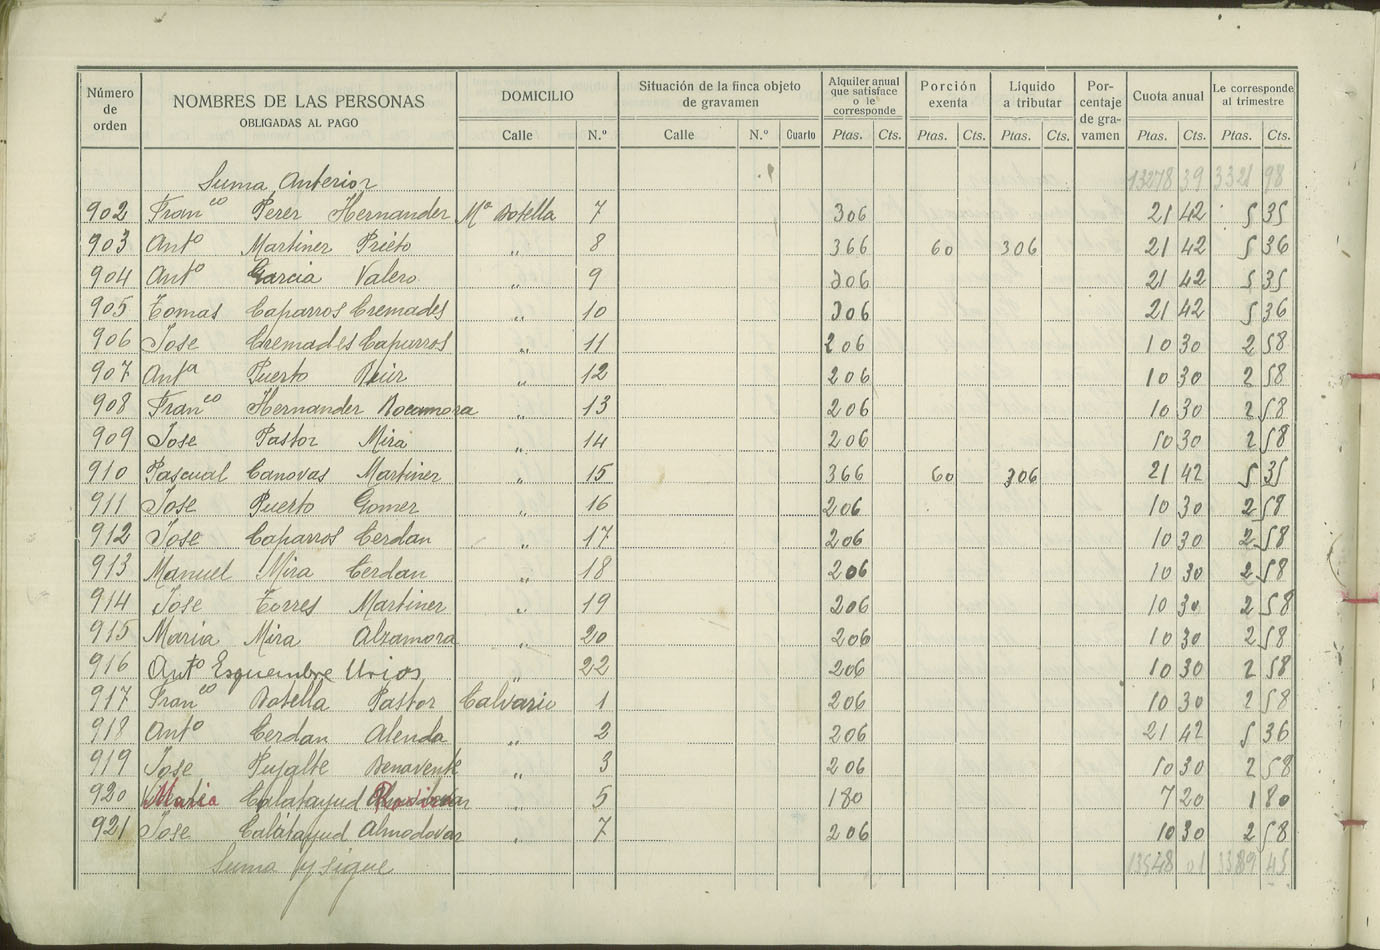 Número de orden | NOMBRES DE LAS PERSONAS OBLIGADAS AL PAGO | DOMICILIO | Situación de la finca objeto de gravamen | Alquiler anual que satisface o le corresponde | Porción exenta | Líquido a tributar | Porcentaje de gravamen | Cuota anual | Le corresponde al trimestre
Calle | N.º | Calle | N.º | Cuarto | Ptas. | Cts. | Ptas. | Cts. | Ptas. | Cts. | Ptas. | Cts. | Ptas. | Cts.
Suma Anterior 13278 39 3321 98
902 Franco Perez Hernandez Mª Botella 7 306 21 42 5 35
903 Anto Martinez Prieto " 8 366 60 306 21 42 5 36
904 Anto Garcia Valero " 9 306 21 42 5 35
905 Tomas Caparros Cremades " 10 306 21 42 5 36
906 Jose Cremades Caparros " 11 206 10 30 2 58
907 Anta Puerto Ruiz " 12 206 10 30 2 58
908 Franco Hernandez Rocamora " 13 206 10 30 2 58
909 Jose Pastor Mira " 14 206 10 30 2 58
910 Pascual Canovas Martinez " 15 366 60 306 21 42 5 35
911 Jose Puerto Gomez " 16 206 10 30 2 58
912 Jose Caparros Cerdan " 17 206 10 30 2 58
913 Manuel Mira Cerdan " 18 206 10 30 2 58
914 Jose Torres Martinez " 19 206 10 30 2 58
915 Maria Mira Alzamora " 20 206 10 30 2 58
916 Anto Esquembre Urios " 22 206 10 30 2 58
917 Franco Botella Pastor Calvario 1 206 10 30 2 58
918 Anto Cerdan Alenda " 2 206 21 42 5 36
919 Jose Pujalte Benavente " 3 206 10 30 2 58
920 Maria Calatayud " 5 180 7 20 1 80
921 Jose Calatayud Almodovar " 7 206 10 30 2 58
Suma y sigue 13548 01 3389 45